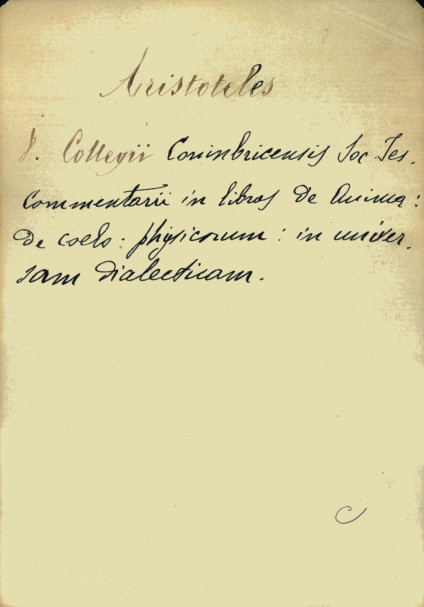 Aristoteles
V. Collegii Conimbricensis Soc Jes.
Commentarii in libros de Anima:
de coelo: physicorum: in univer-
sam dialecticam.
C